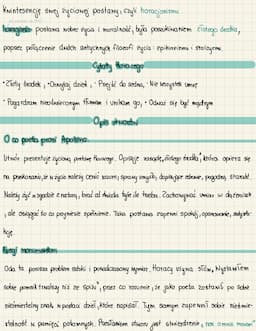 Kwintesencję swej życiowej postawy, czyli horacjanizmu
horacjanizm postawa wobec życia i moralność, była poszukiwaniem złotego środka,
poprzez połączenie dwóch antycznych filozofii życia: epikureizmu i stoicyzmu.
Cytaty Horacego
• Złoty środek, • Chwytaj dzień, • Przejść do sedna, • Nie wszystek umrę
• Pogardzam nieoświeconym tłumem i unikam go, • Odważ się być mądrym
Opis utworów
O co poeta prosi Apollina
Utwór prezentuje życiową postawę Horacego. Opisuje zasadę „złotego środka", która opiera się
na przekonaniu, że w życiu należy cenić umiar, sprawny umysł, dopisujące zdrowie, pogodną starość.
Należy żyć w zgodzie z naturą, brać od świata tyle ile trzeba. Zachowywać umiar w dążeniach
, ale osiągać to co pozwoli spełnienie. Taka postawa zapewni spokój, opanowanie,
Exegi monumentum
Oda ta porusza problem sztuki i ponadczasowy wymiar. Horacy używa słów, Wystawiłem
sobie pomnik trwalszy niż ze spiżu", przez co rozumie, że jako poeta zostawił po sobie
nieśmiertelny znak w postaci dzieł, które napisał. Tym samym zapewnił sobie nieśmier-
telność w pamięci potomnych. Przesłaniem utworu jest stwierdzenie, „non omnis moriar"